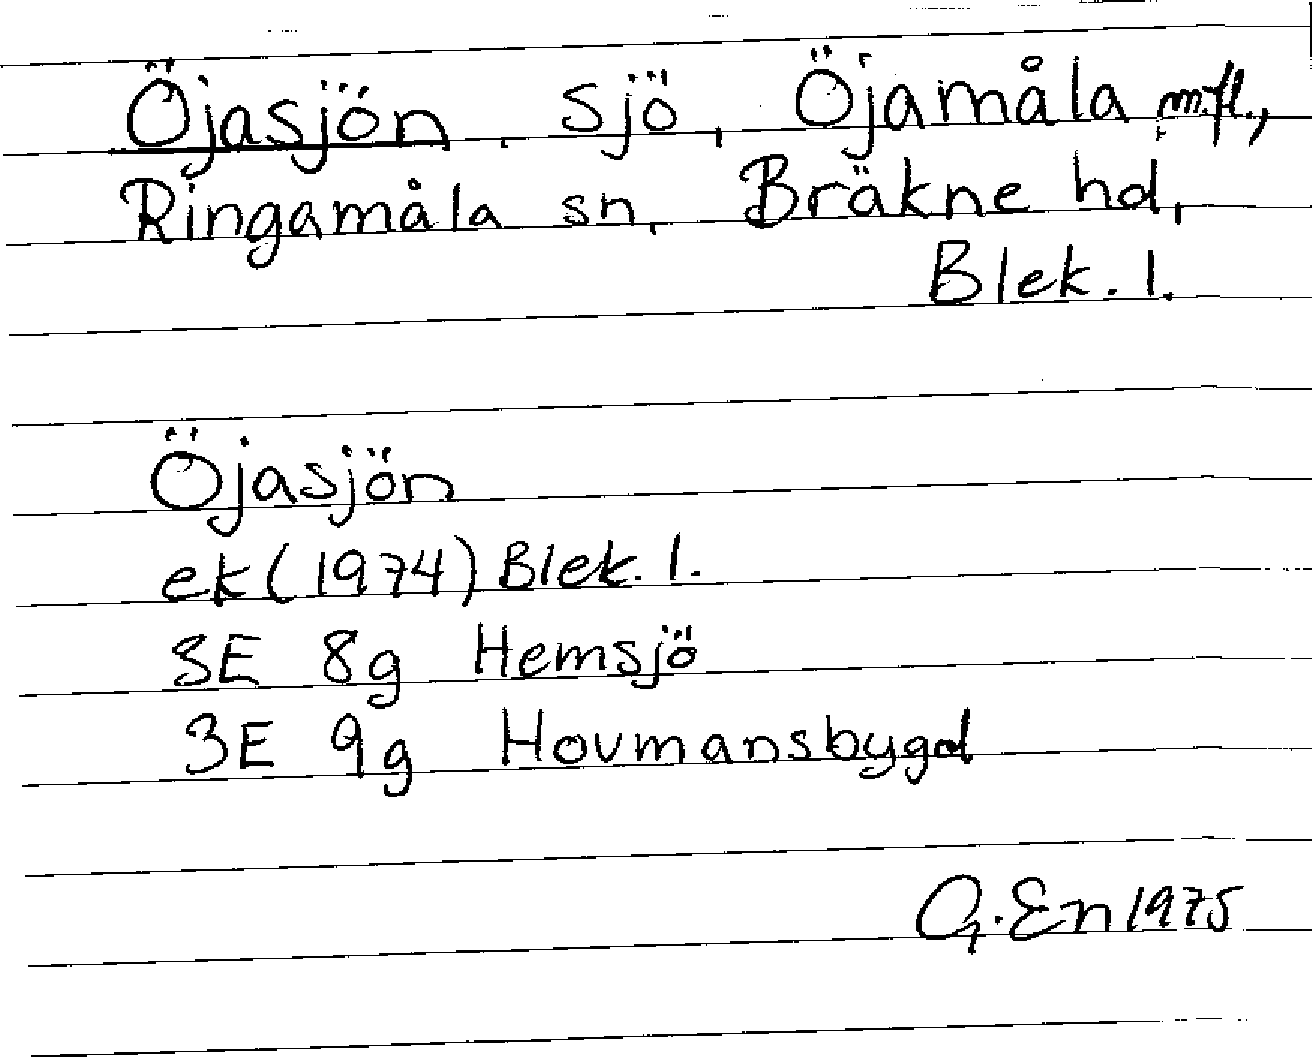 Öjasjön, sjö, Öjamåla m.fl.,
Ringamåla sn, Bräkne hd,
Blek. l.
Öjasjön
ek (1974) Blek. l.
3E 8g Hemsjö
3E 9g Hovmansbygd
G. En 1975